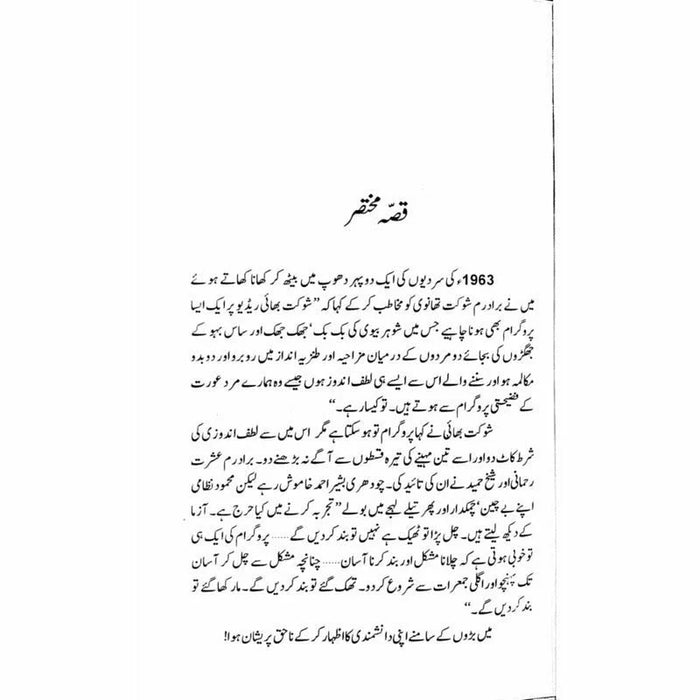 قصّہ مختصر
1963ء کی سردیوں کی ایک دوپہر دھوپ میں بیٹھ کر کھانا کھاتے ہوئے
میں نے برادرم شوکت تھانوی کو مخاطب کر کے کہا کہ ’’شوکت بھائی ریڈیو پر ایک ایسا
پروگرام بھی ہونا چاہیے جس میں شوہر بیوی کی بک بک‘ جھک جھک اور ساس بہو کے
جھگڑوں کی بجائے دو مردوں کے درمیان مزاحیہ اور طنزیہ انداز میں روبرو اور دوبدو
مکالمہ ہو اور سننے والے اس سے ایسے ہی لطف اندوز ہوں جیسے وہ ہمارے مرد عورت
کے فضیحتی پروگرام سے ہوتے ہیں۔ تو کیسا رہے۔‘‘
شوکت بھائی نے کہا پروگرام تو ہو سکتا ہے مگر اس میں سے لطف اندوزی کی
شرط کاٹ دو اور اسے تین مہینے کی تیرہ قسطوں سے آگے نہ بڑھنے دو۔ برادرم عشرت
رحمانی اور شیخ حمید نے ان کی تائید کی۔ چودھری بشیر احمد خاموش رہے لیکن محمود نظامی
اپنے بے چین‘ چمکدار اور پھر تیلے لہجے میں بولے ’’تجربہ کرنے میں کیا حرج ہے۔ آزما
کے دیکھ لیتے ہیں۔ چل پڑا تو ٹھیک ہے نہیں تو بند کر دیں گے...... پروگرام کی ایک ہی
تو خوبی ہوتی ہے کہ چلانا مشکل اور بند کرنا آسان...... چنانچہ مشکل سے چل کر آسان
تک پہنچو اور اگلی جمعرات سے شروع کر دو۔ تھک گئے تو بند کر دیں گے۔ مار کھا گئے تو
بند کر دیں گے۔‘‘
میں بڑوں کے سامنے اپنی دانشمندی کا اظہار کر کے ناحق پریشان ہوا!